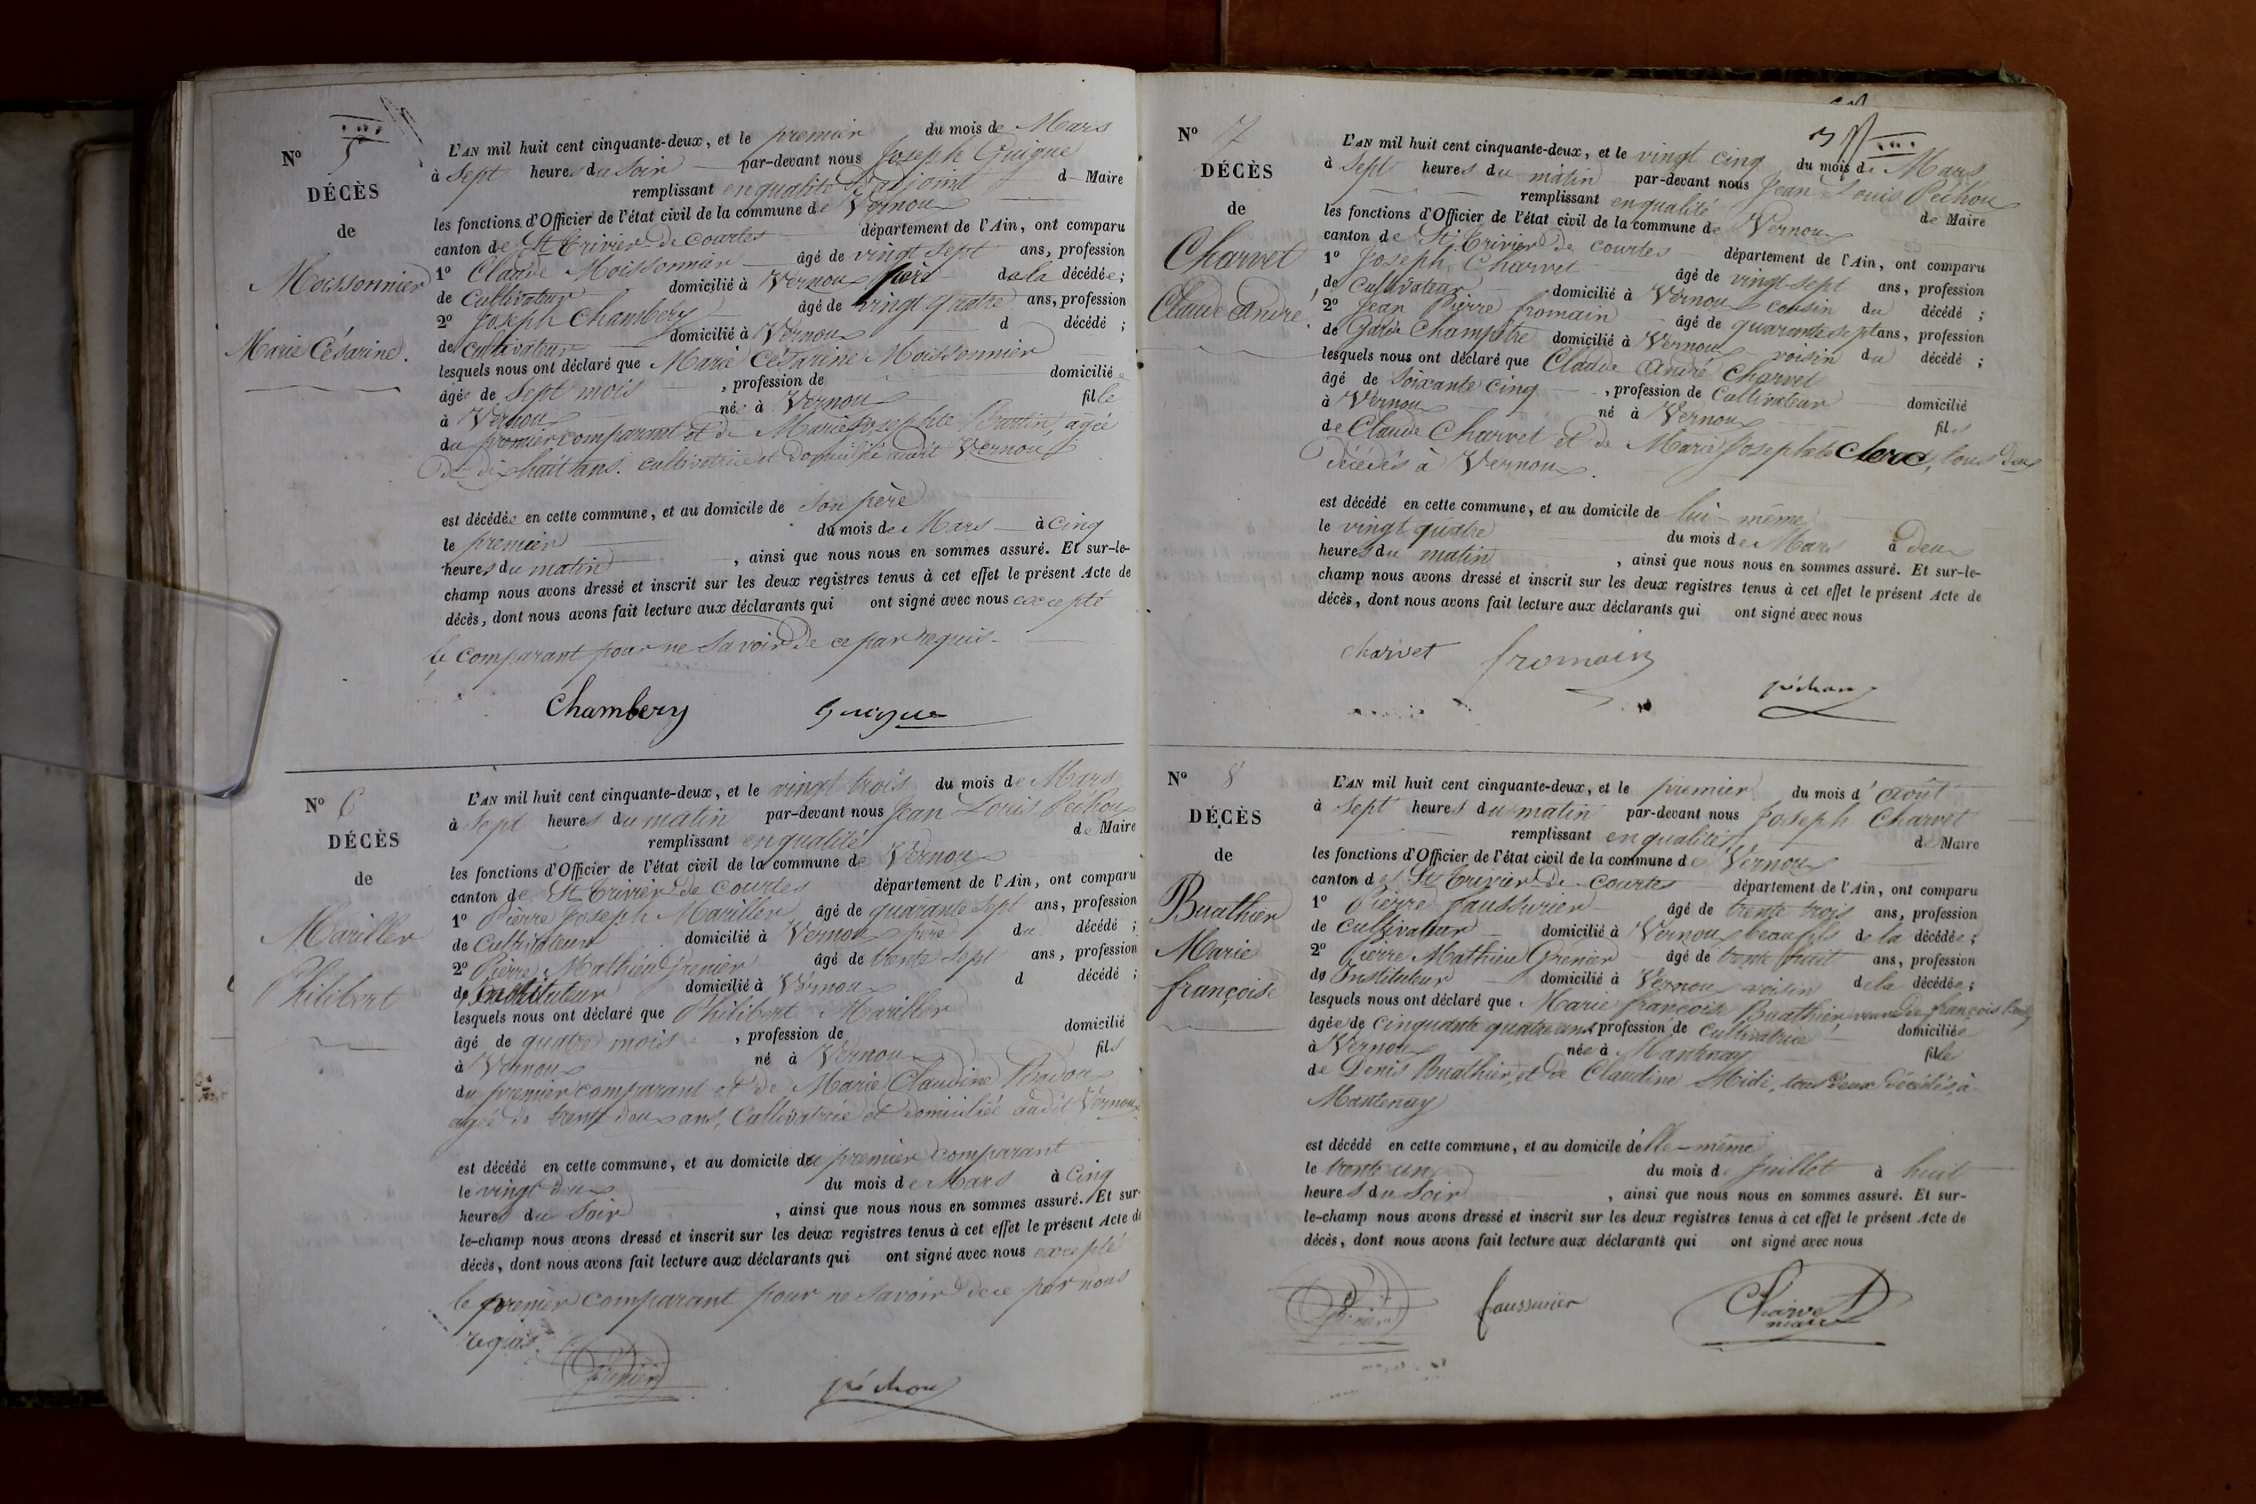 N° 5
DÉCÈS
de
Moissonnier
Marie Césarine.
L'AN mil huit cent cinquante-deux, et le premier du mois de Mars
à Sept heures du Soir par-devant nous Joseph Guigue
remplissant en qualité d'adjoint d Maire
les fonctions d'Officier de l'état civil de la commune de Vernoux
canton de St Trivier de Courtes département de l'Ain, ont comparu
1° Claude Moissonnier âgé de vingt sept ans, profession
de Cultivateur domicilié à Vernoux père de la décédée;
2° Joseph Chambery âgé de vingt quatre ans, profession
de Cultivateur domicilié à Vernoux d décédé ;
lesquels nous ont déclaré que Marie Césarine Moissonnier
âgée de Sept mois , profession de domiciliée
à Vernoux née à Vernoux fille
du premier comparant et de Marie Josephte agée
de dix huit ans. cultivatrice et domiciliée audit Vernoux
est décédée en cette commune, et au domicile de Son père
le premier du mois de Mars à Cinq
heures du matin , ainsi que nous nous en sommes assuré. Et sur-le-
champ nous avons dressé et inscrit sur les deux registres tenus à cet effet le présent Acte de
décès, dont nous avons fait lecture aux déclarants qui ont signé avec nous excepté
le comparant pour ne Savoir de ce par requis.
Chambery Guigue
N° 6
DÉCÈS
de
Mariller
Philibert
L'AN mil huit cent cinquante-deux, et le vingt trois du mois de Mars
à Sept heures du matin par-devant nous Jean Louis Péchoux
remplissant en qualité de Maire
les fonctions d'Officier de l'état civil de la commune de Vernoux
canton de St Trivier de Courtes département de l'Ain, ont comparu
1° Pierre Joseph Mariller âgé de quarante Sept ans, profession
de Cultivateur domicilié à Vernoux père du décédé ;
2° Pierre Mathieu Grenier âgé de trente Sept ans, profession
de Instituteur domicilié à Vernoux d décédé ;
lesquels nous ont déclaré que Philibert Mariller
âgé de quatre mois , profession de domicilié
à Vernoux né à Vernoux fils
du premier comparant et de Marie Claudine
agée de trente deux ans, Cultivatrice et domiciliée audit Vernoux
est décédé en cette commune, et au domicile du premier comparant
le vingt deux du mois de Mars à Cinq
heures du Soir , ainsi que nous nous en sommes assuré. Et sur-
le-champ nous avons dressé et inscrit sur les deux registres tenus à cet effet le présent Acte de
décès, dont nous avons fait lecture aux déclarants qui ont signé avec nous excepté
le premier comparant pour ne Savoir de ce par nous
requis.
Grenier péchoux
N° 7
DÉCÈS
de
Charvet
Claude André
L'AN mil huit cent cinquante-deux, et le vingt cinq du mois de Mars
à Sept heures du matin par-devant nous Jean Louis Péchoux
remplissant en qualité de Maire
les fonctions d'Officier de l'état civil de la commune de Vernoux
canton de St Trivier de Courtes département de l'Ain, ont comparu
1° Joseph Charvet âgé de vingt-sept ans, profession
de Cultivateur domicilié à Vernoux cousin du décédé ;
2° Jean Pierre fromain âgé de quarante sept ans, profession
de Garde Champêtre domicilié à Vernoux voisin du décédé ;
lesquels nous ont déclaré que Claude André Charvet
âgé de Soixante cinq , profession de Cultivateur domicilié
à Vernoux né à Vernoux fils
de Claude Charvet et de Marie Josephte Clerc, tous deux
décédés à Vernoux.
est décédé en cette commune, et au domicile de lui-même
le vingt quatre du mois de Mars à deux
heures du matin , ainsi que nous nous en sommes assuré. Et sur-le-
champ nous avons dressé et inscrit sur les deux registres tenus à cet effet le présent Acte de
décès, dont nous avons fait lecture aux déclarants qui ont signé avec nous
Charvet fromain
péchoux
N° 8
DÉCÈS
de
Buathier
Marie
françoise
L'AN mil huit cent cinquante-deux, et le premier du mois d'août
à Sept heures du matin par-devant nous Joseph Charvet
remplissant en qualité de Maire
les fonctions d'Officier de l'état civil de la commune de Vernoux
canton de St Trivier de Courtes département de l'Ain, ont comparu
1° Pierre faussurier âgé de trente trois ans, profession
de Cultivateur domicilié à Vernoux beau fils de la décédée;
2° Pierre Mathieu Grenier âgé de trente huit ans, profession
de Instituteur domicilié à Vernoux voisin de la décédée;
lesquels nous ont déclaré que Marie françoise Buathier veuve de françois
âgée de Cinquante quatre ans, profession de Cultivatrice domiciliée
à Vernoux née à Mantenay fille
de Denis Buathier, et de Claudine Midi, tous deux décédés, à
Mantenay
est décédé en cette commune, et au domicile d'elle-même
le trente un du mois de Juillet à huit
heures du Soir , ainsi que nous nous en sommes assuré. Et sur-
le-champ nous avons dressé et inscrit sur les deux registres tenus à cet effet le présent Acte de
décès, dont nous avons fait lecture aux déclarants qui ont signé avec nous
Grenier faussurier Charvet
maire